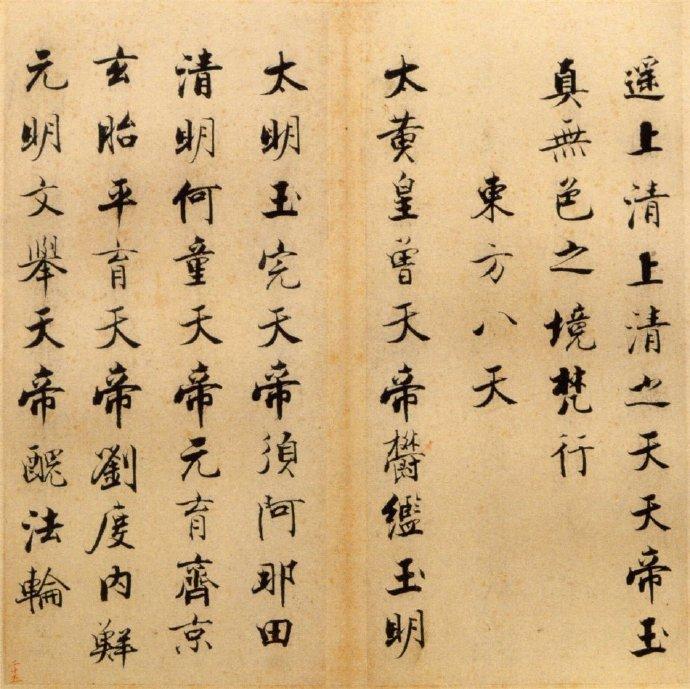 遥上清上清之天天帝玉
真無色之境梵行
東方八天
太黄皇曾天帝鬱繿玉明
太明玉完天帝須阿那田
清明何童天帝元育齊京
玄胎平育天帝劉度内鮮
元明文舉天帝醜法輪